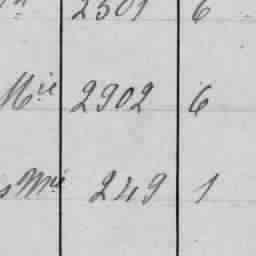 2501 6
Mie 2902 6
s Mie 249 1